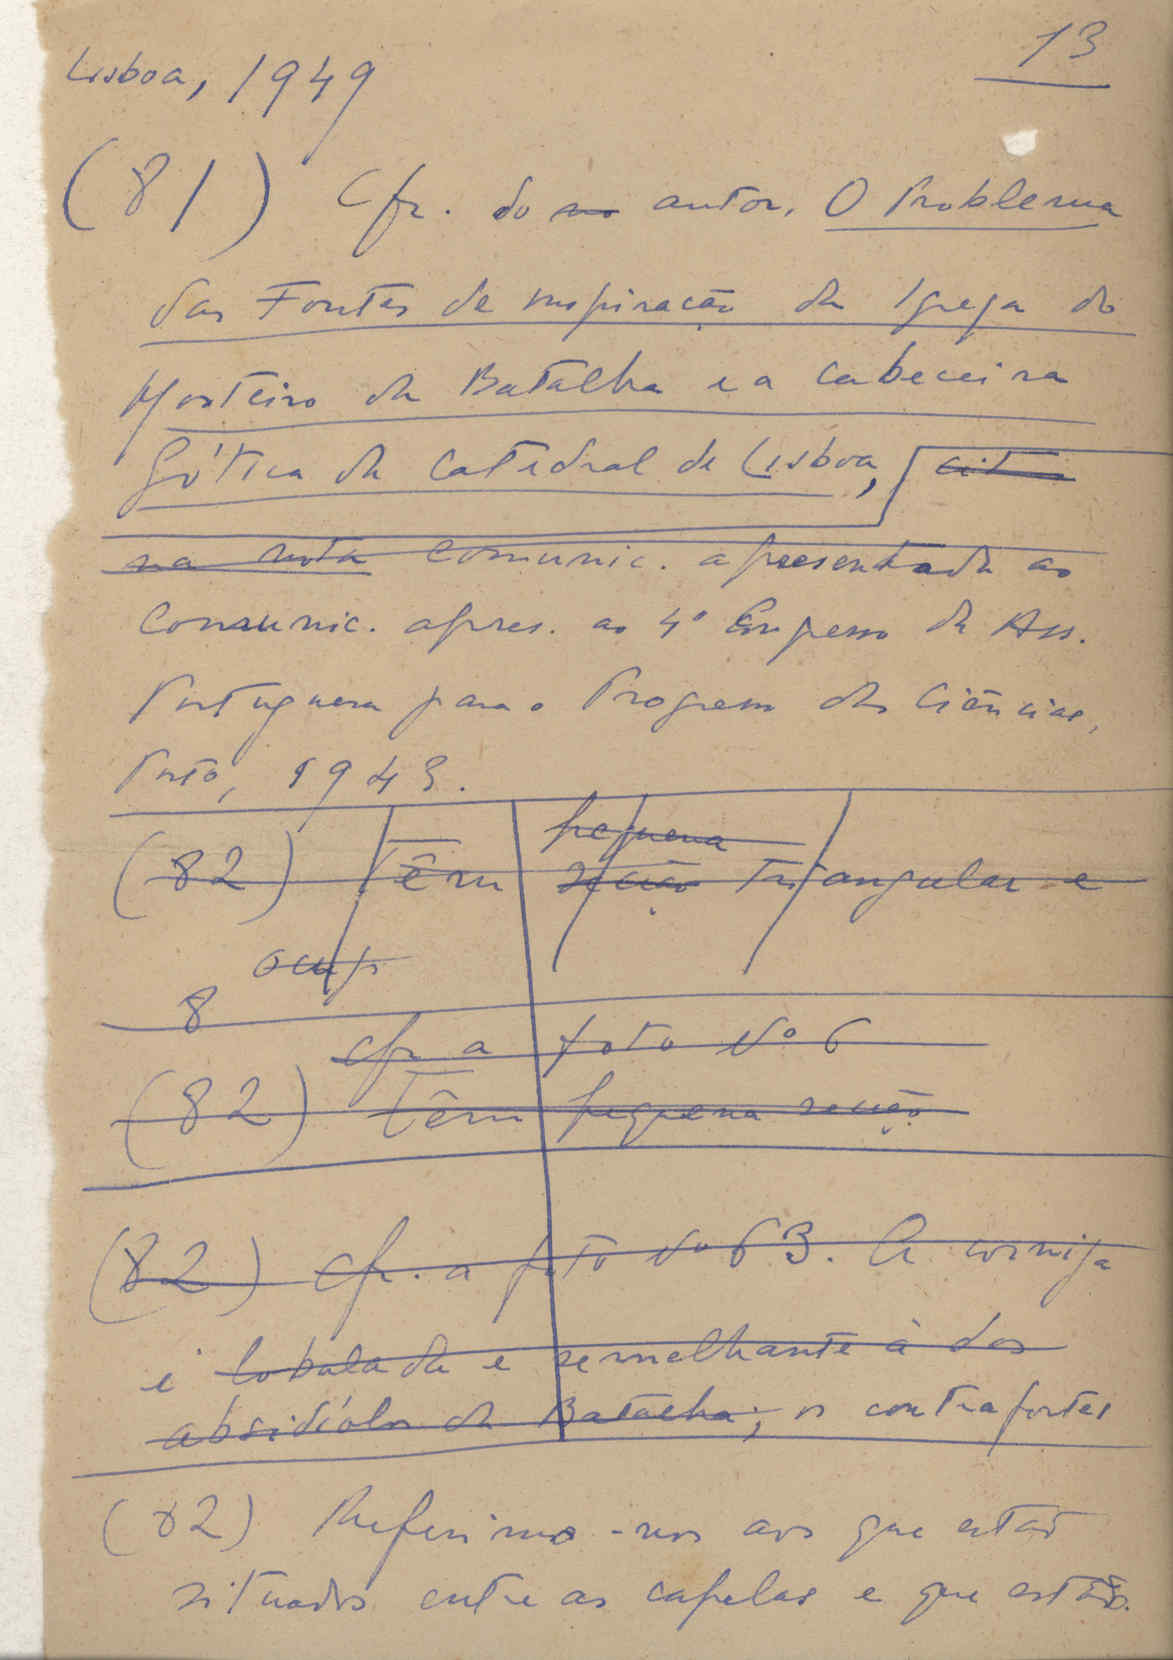 13
Lisboa, 1949
(81) Cfr. do no autor, O Problema
das Fontes de inspiração da Igreja do
Mosteiro da Batalha e a cabeceira
gótica da Catedral de Lisboa, cit
na nota comunic. apresentada ao
Comunic. apres. ao 4º Congresso da Ass.
Portuguesa para o Progresso das Ciências,
Porto, 1943.
pequena
(82) Têm secção triangular e
ocup
8
cfr a foto nº 6
(82) Têm pequena secção
(82) Cfr. a foto nº 63. A cornija
é lobulada e semelhante à dos
absidíolos da Batalha; os contrafortes
(82) Referimo-nos aos que estão
situados entre as capelas e que estão